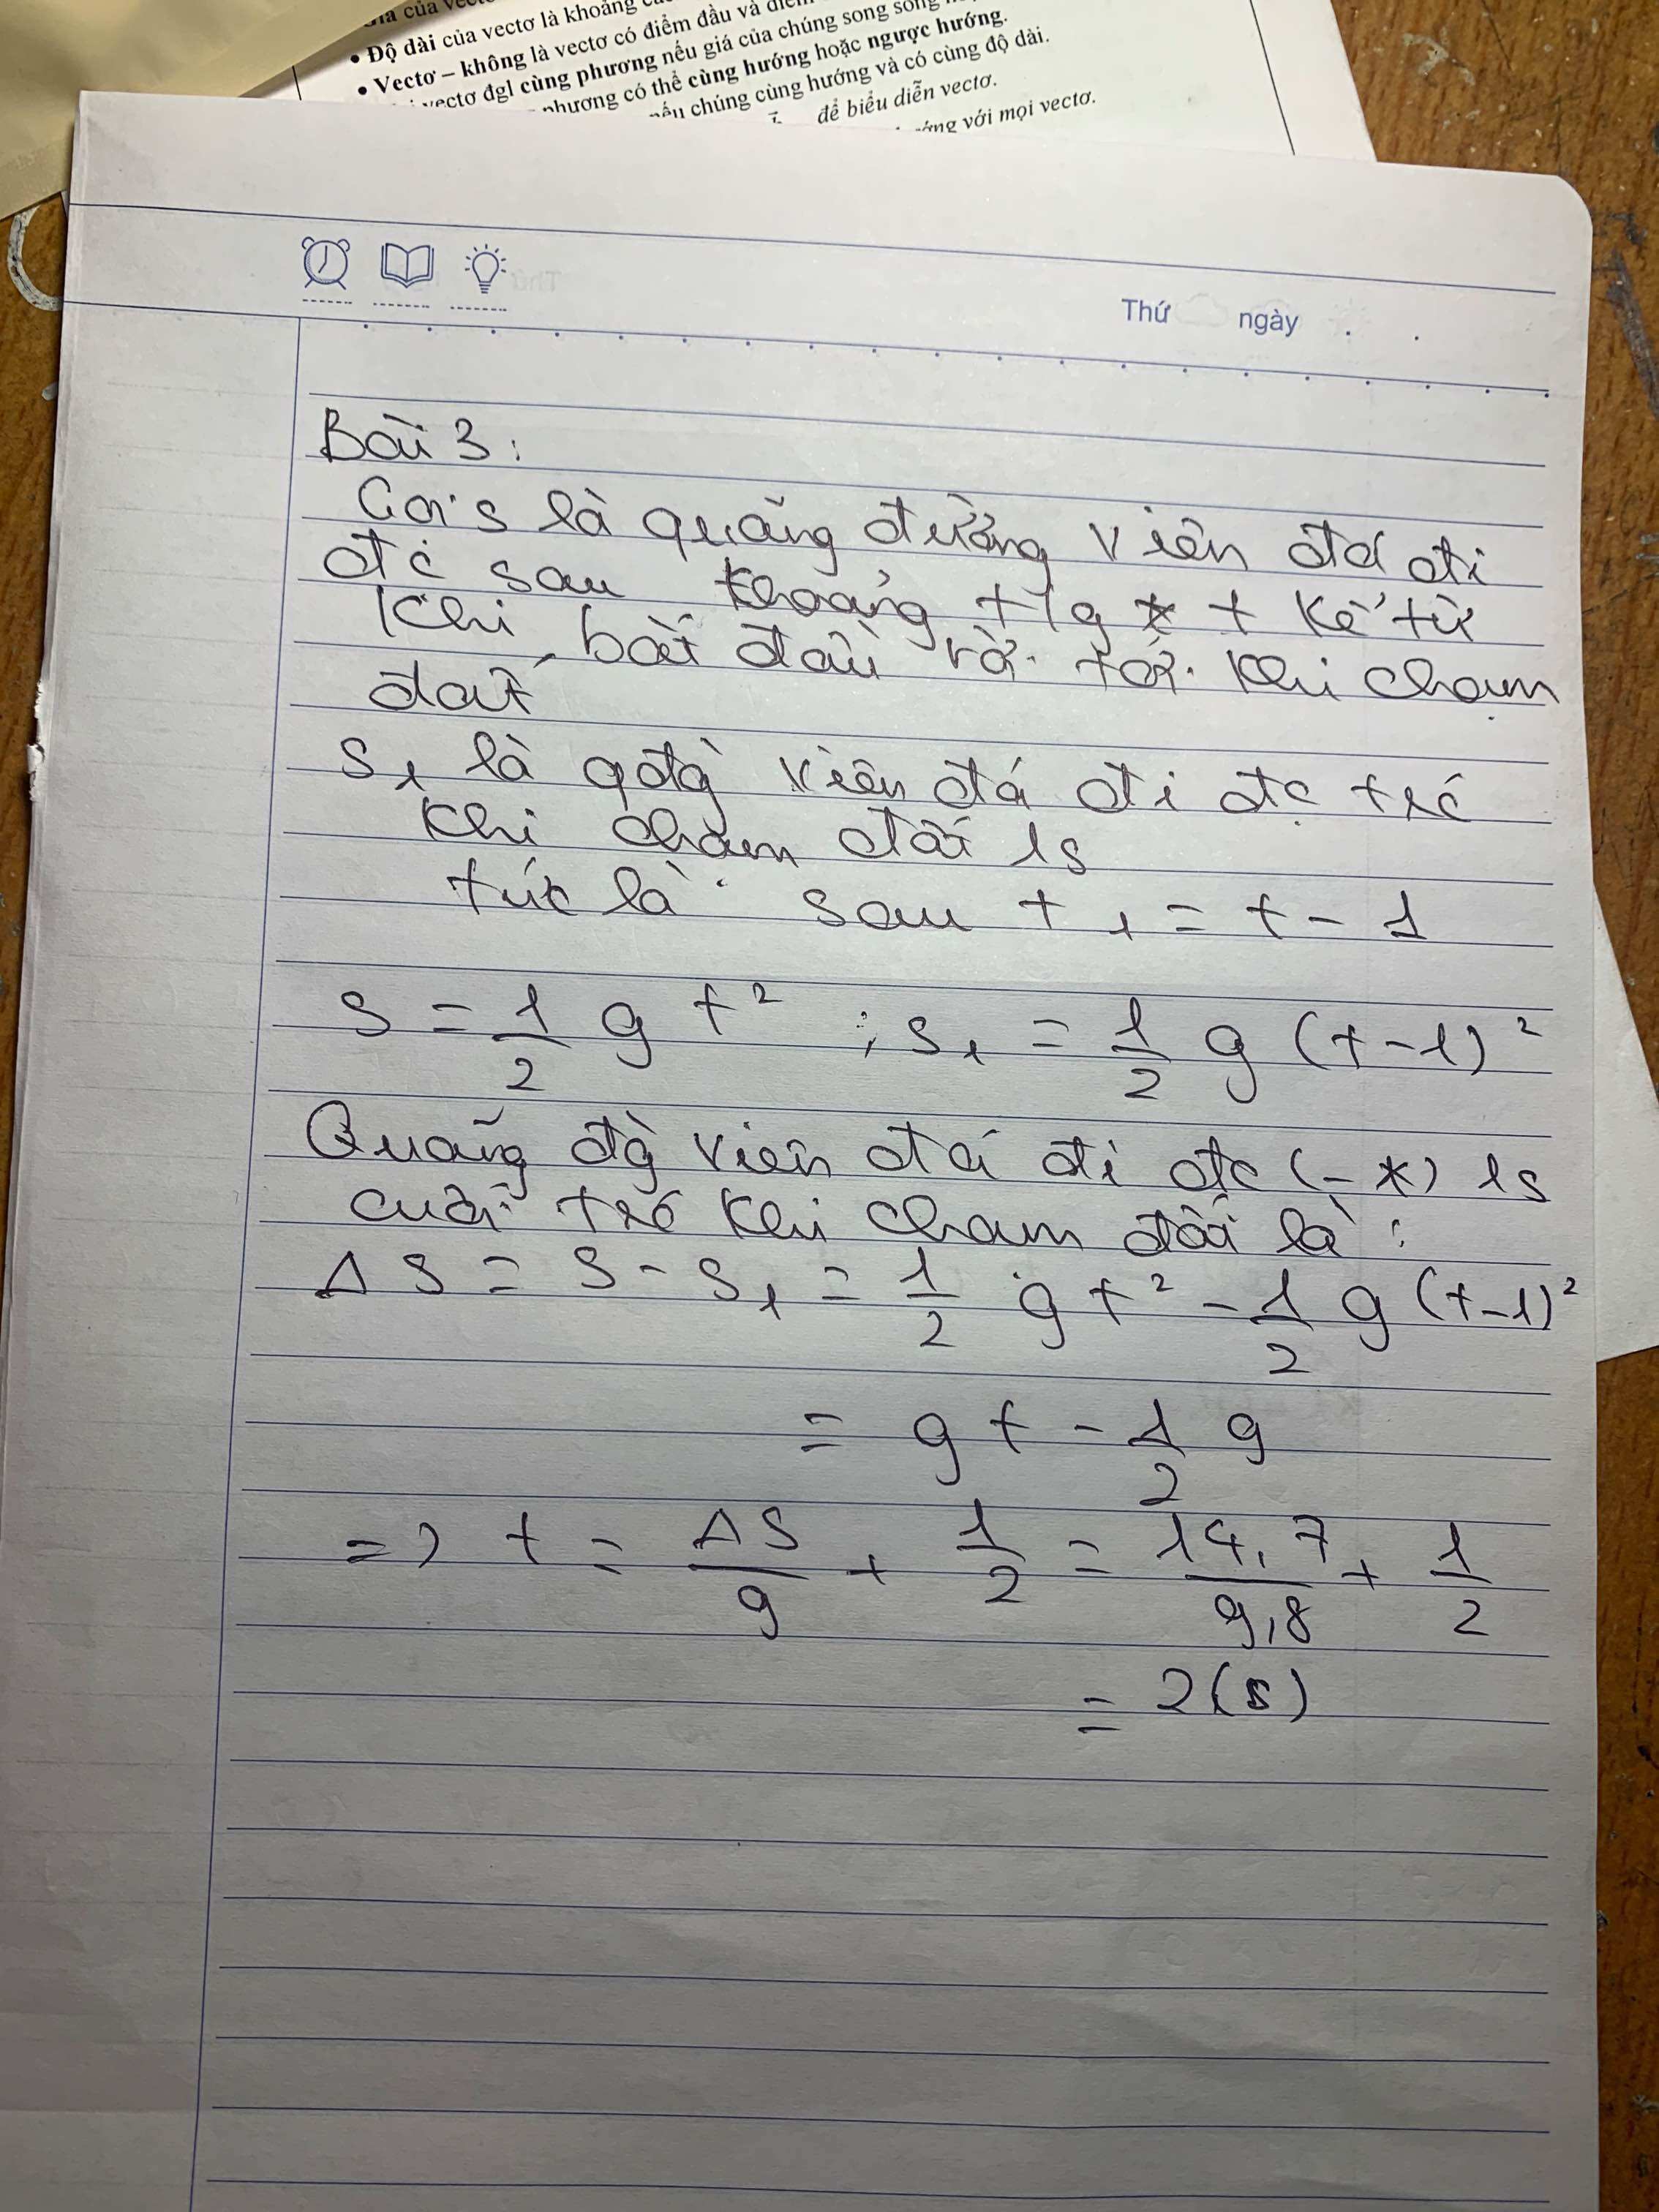 của vectơ là khoảng
• Độ dài của vectơ là khoảng
• Vectơ – không là vectơ có điểm đầu và điểm
vectơ đgl cùng phương nếu giá của chúng song song
phương có thể cùng hướng hoặc ngược hướng.
nếu chúng cùng hướng và có cùng độ dài.
để biểu diễn vectơ.
với mọi vectơ.
Thứ ngày
Bài 3:
Gọi s là quãng đường viên đá đi
đc sau khoảng t/g t kể từ
khi bắt đầu rơi tới khi chạm
đất
s₁ là qđg viên đá đi đc trc
khi chạm đất 1s
tức là sau t₁ = t - 1
s = 1/2 g t² ; s₁ = 1/2 g (t-1)²
Quãng đg viên đá đi đc 1s
cuối trc khi chạm đất là:
Δs = s - s₁ = 1/2 g t² - 1/2 g (t-1)²
= g t - 1/2 g
=> t = Δs/g + 1/2 = 14,7/9,8 + 1/2
= 2(s)